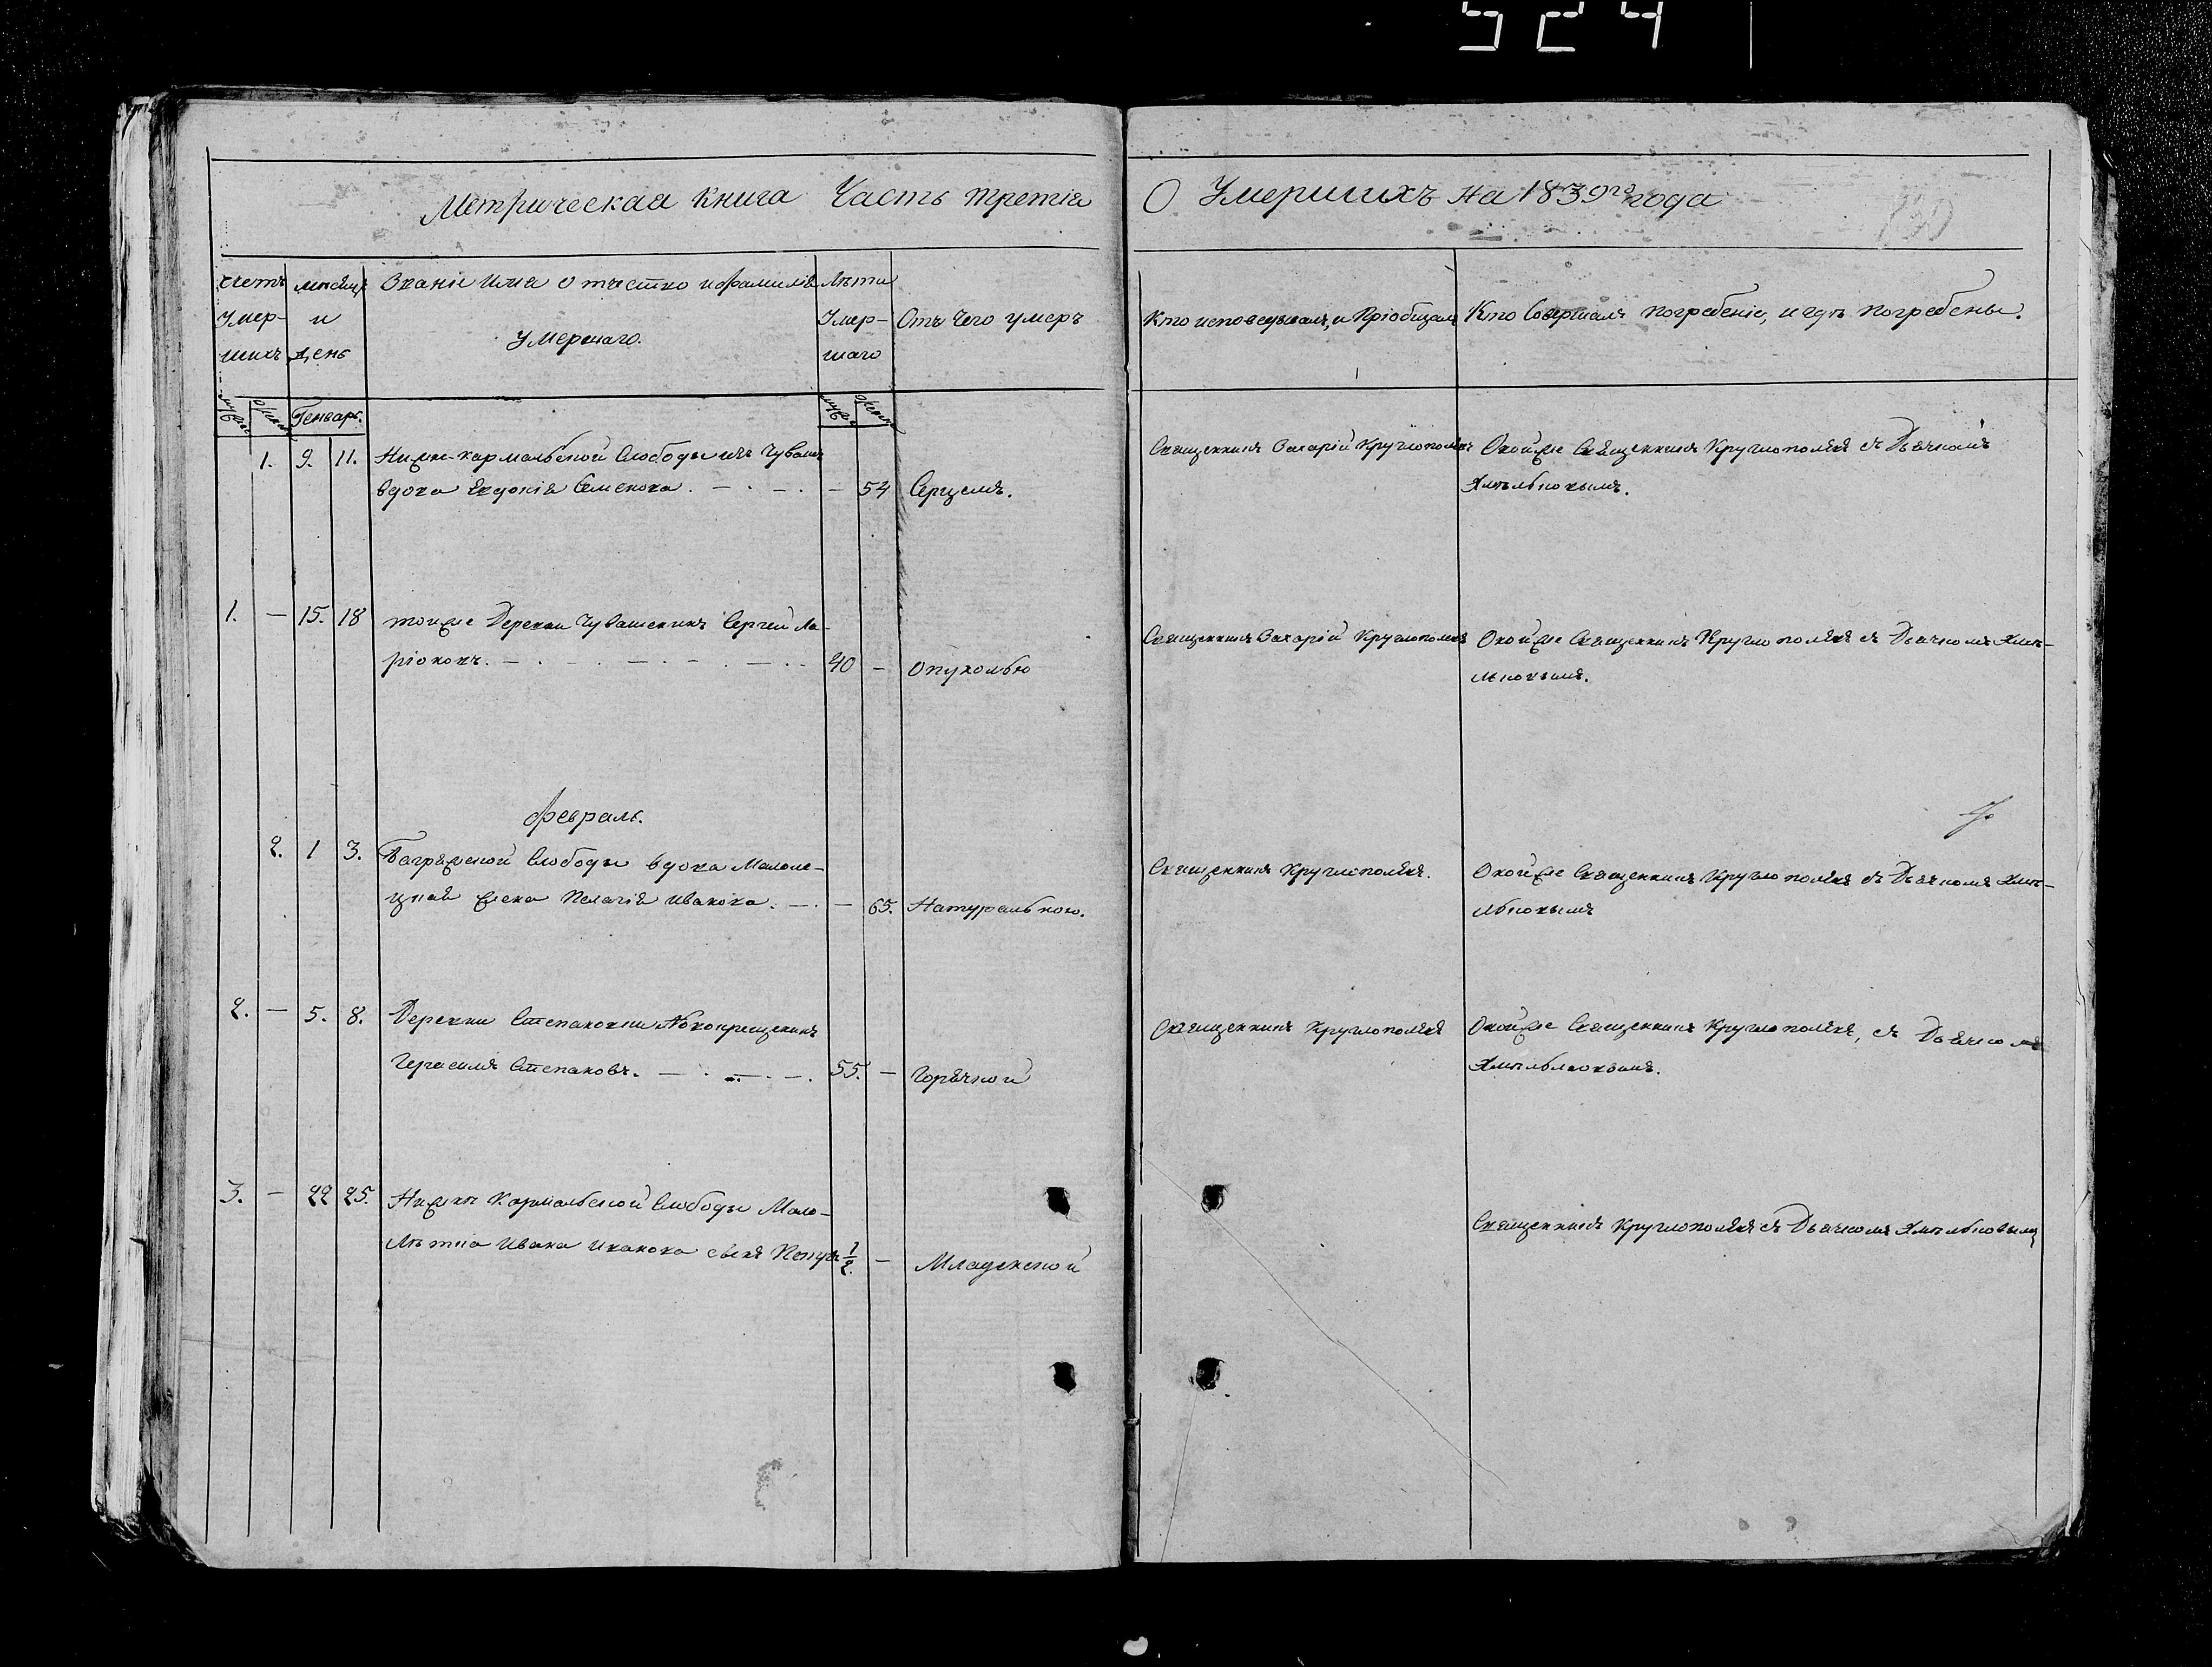 524
Метрическая книга Часть третія
О Умершихъ на 1839го года
130
счетъ умер-шихъ
мѣсяцъ и день
Званіе имя отчество и фамилія умершаго.
Лѣта Умер-шаго
Отъ Чего умеръ
Кто исповедывалъ, и Пріобщалъ
Кто Совершалъ погребеніе, и гдѣ погребены.
Генварь.
1. 9. 11. Нижне-кармальской Слободы изъ Чувашъ
вдова Евдокія Семенова. — 54 Сердцемъ.
Священникъ Захарій Круглополевъ
Оной же Священникъ Круглополевъ съ Дьячкомъ
Хмѣльновымъ.
1. — 15. 18 той же Деревни Чувашенинъ Сергей Ла-
ріоновъ. 40 — опухолью
Священникъ Захарій Круглополевъ
Оной же Священникъ Круглополевъ съ Дьячкомъ Хмѣ-
льновымъ.
Февраль.
2. 1 3. Багряжской Слободы вдова
жена Пелагія Иванова. — 65. Натуральною.
Священникъ Круглополевъ.
Оной же Священникъ Круглополевъ съ Дьячкомъ Хмѣ-
льновымъ
2. — 5. 8. Деревни Степановки Новокрещенинъ
Герасимъ Степановъ. 55. — Горячкой
Священникъ Круглополевъ
Оной же Священникъ Круглополевъ, съ Дьячкомъ
Хмѣльновымъ.
3. — 22 25. Нижне Кармальской Слободы Мало-
лѣтка Ивана Иванова сынъ 1/2. — Младенской
Священникъ Круглополевъ съ Дьячкомъ Хмѣльновымъ